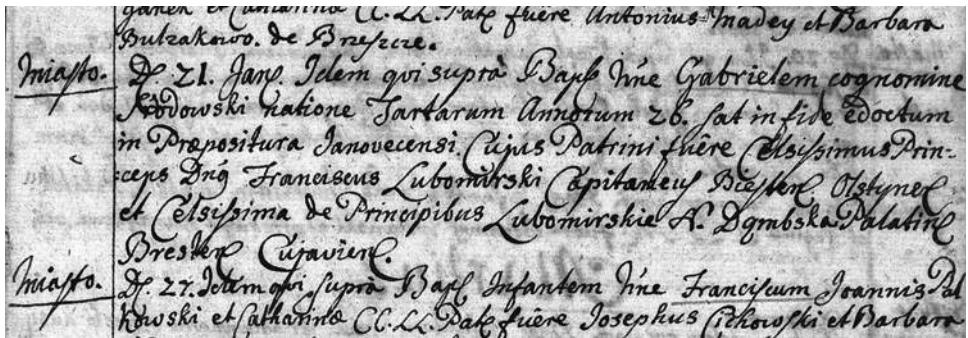 ganek et Catharina CC. LL. Pat. fuere Antonius Madey et Barbara
Bulzakowo. de Brzeszcze.
Miasto. D. 21. Jan. Idem qui suprà Bapt. nñe Gabrielem cognomine
natione Tartarum Annorum 26. sat in fide edoctum
in Præpositura Janovecensi. Cujus Patrini fuêre Celsissimus Prin-
=ceps Dnq Franciscus Lubomirski Capitaneus Biesten. Olstynen.
et Celsissima de Principibus Lubomirskie N. Dąmbska Palatin.
Bresten. Cujavien.
Miasto. D. 27. Idem qui suprà Bapt. Infantem nñe Franciscum Joannis Pal
kowski et Catharinæ CC. LL. Pat. fuêre Josephus Cichowski et Barbara